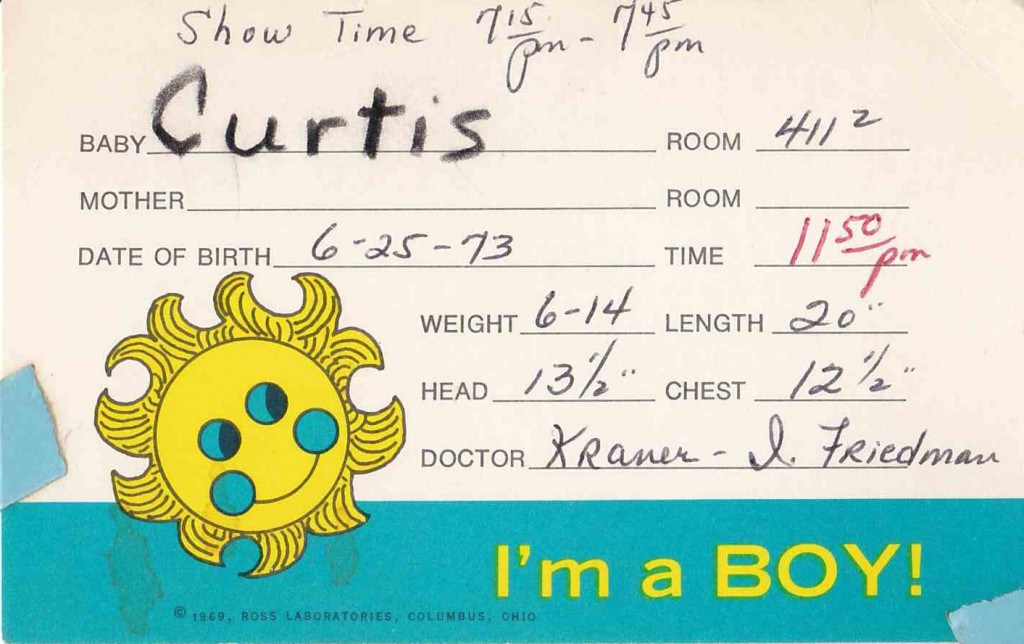 Show Time 7 15/pm - 7 45/pm
BABY Curtis ROOM 411 2
MOTHER ROOM
DATE OF BIRTH 6-25-73 TIME 11 50/pm
WEIGHT 6-14 LENGTH 20"
HEAD 13 1/2" CHEST 12 1/2"
DOCTOR Kraner - I. Friedman
I'm a BOY!
© 1969, ROSS LABORATORIES, COLUMBUS, OHIO